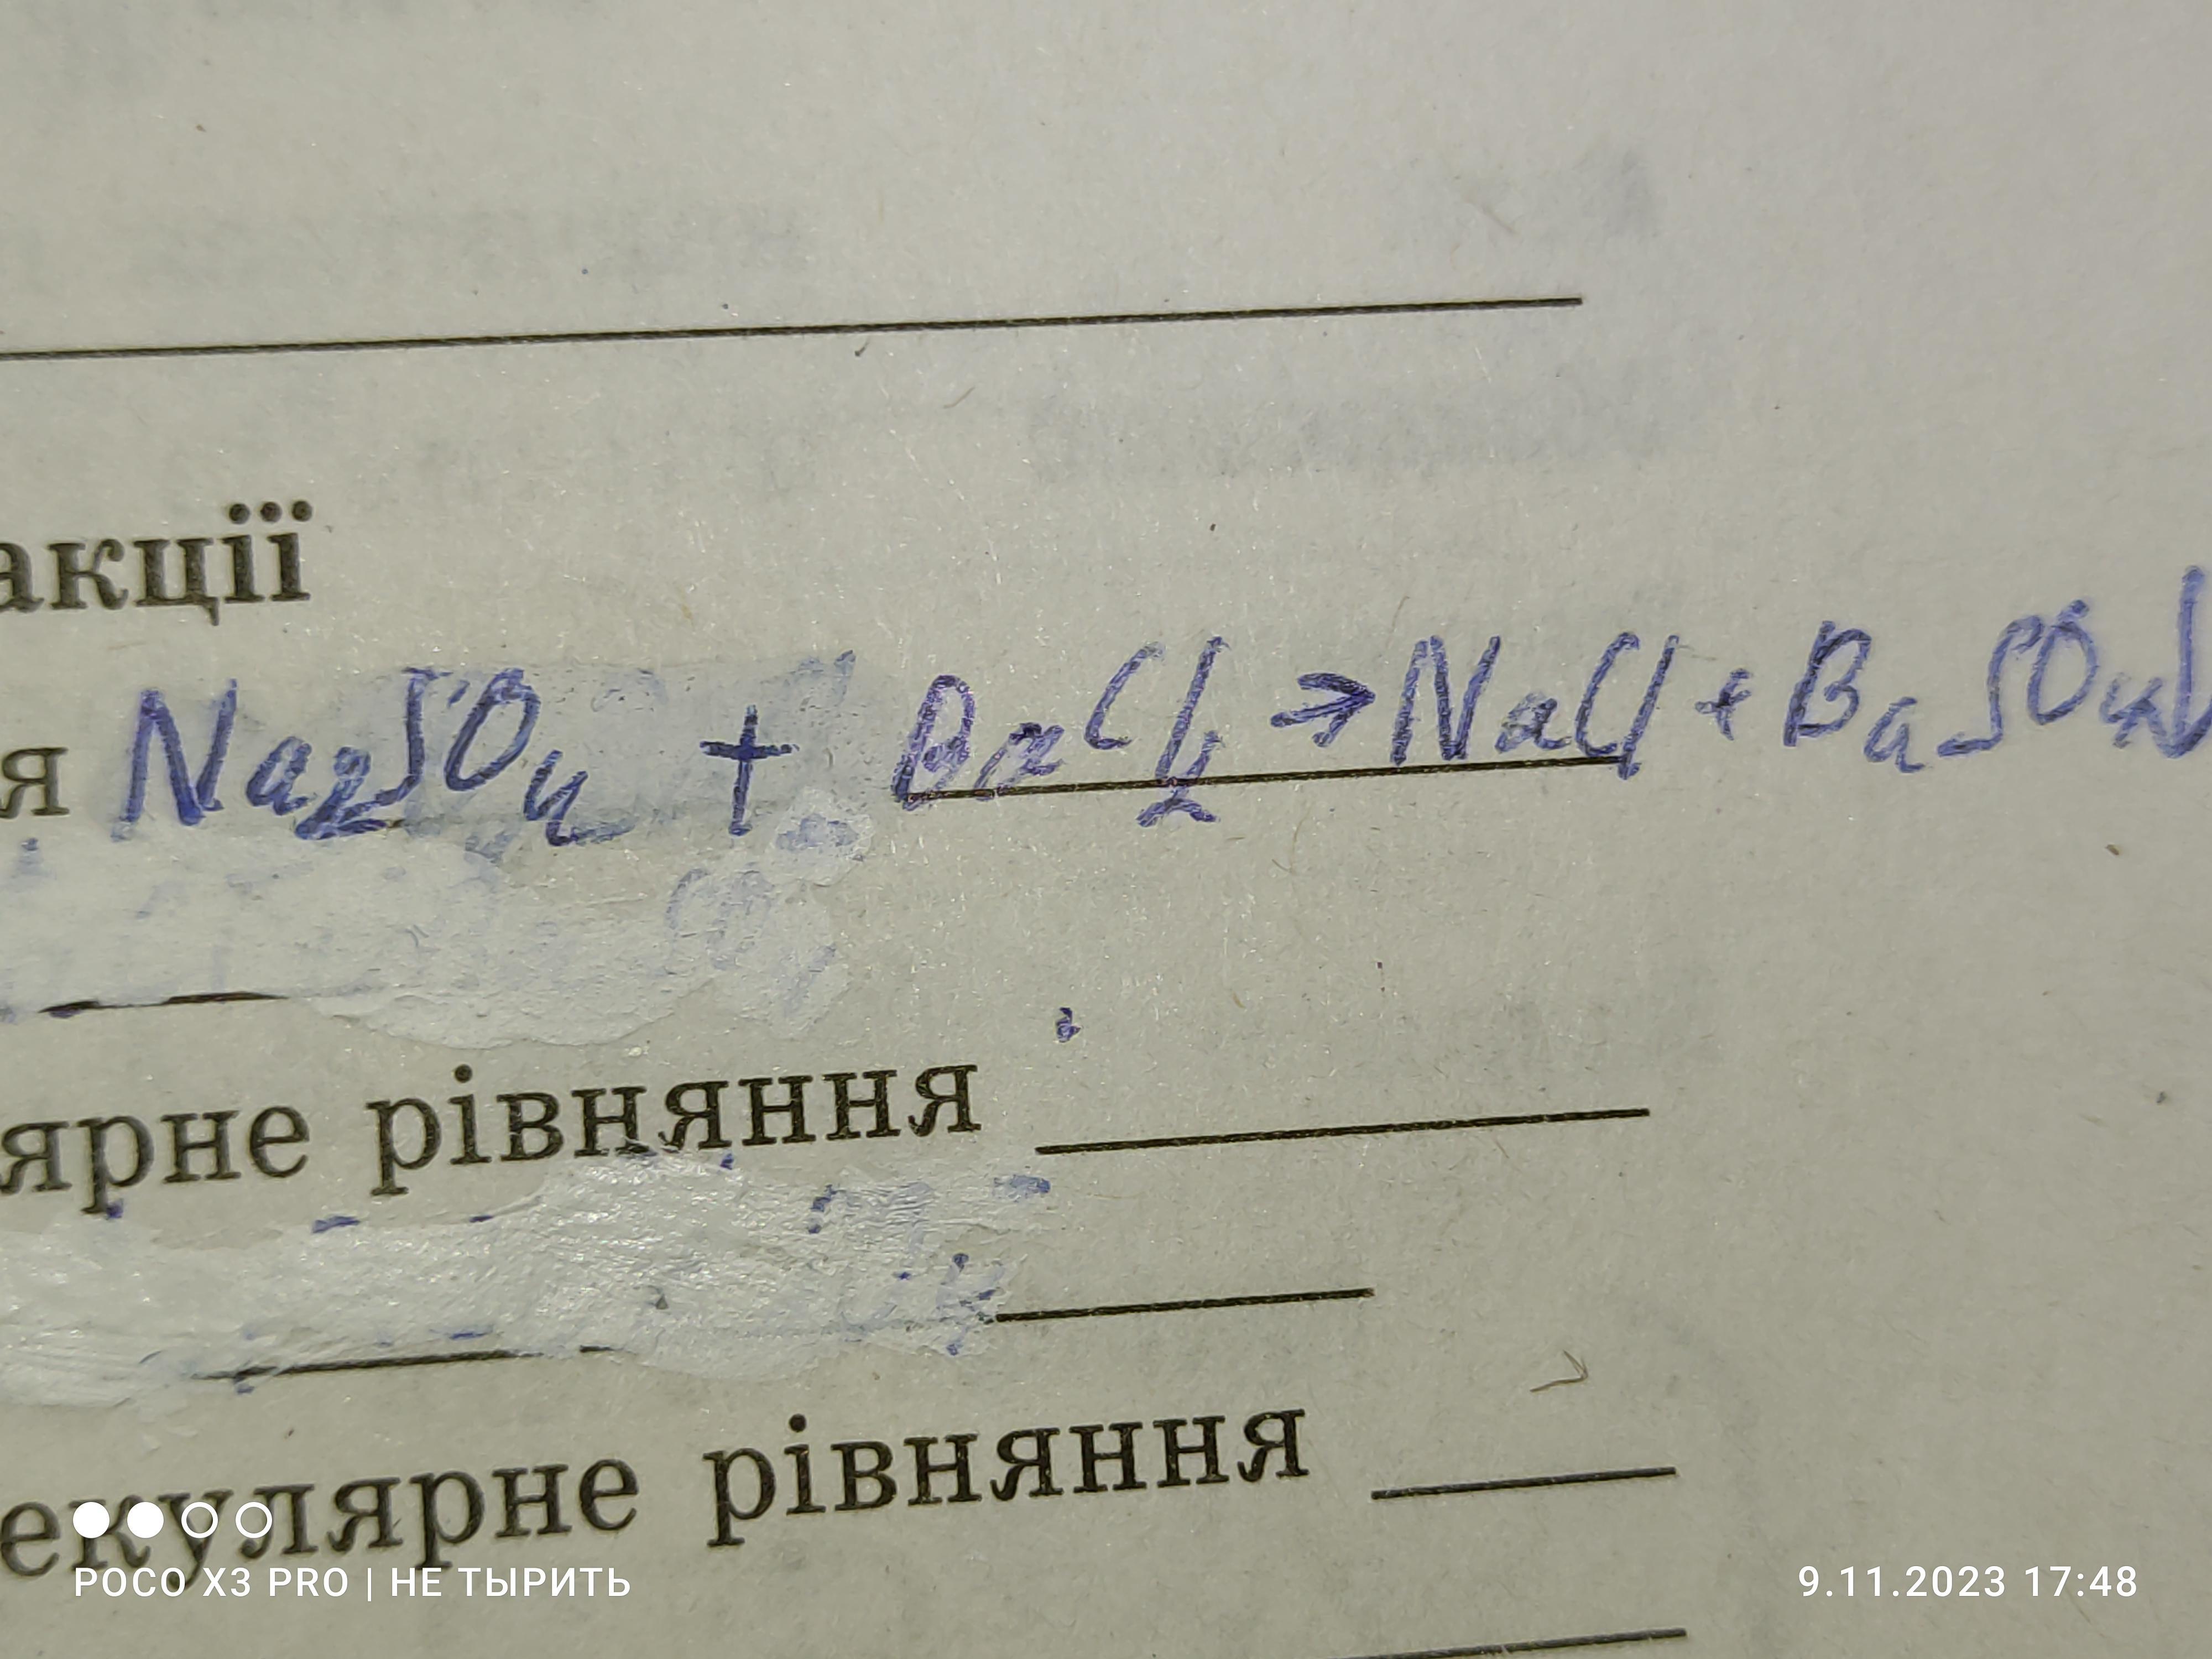 акції
я Na₂SO₄ + BaCl₂ → NaCl + BaSO₄↓
ярне рівняння
екулярне рівняння
POCO X3 PRO | НЕ ТЫРИТЬ
9.11.2023 17:48